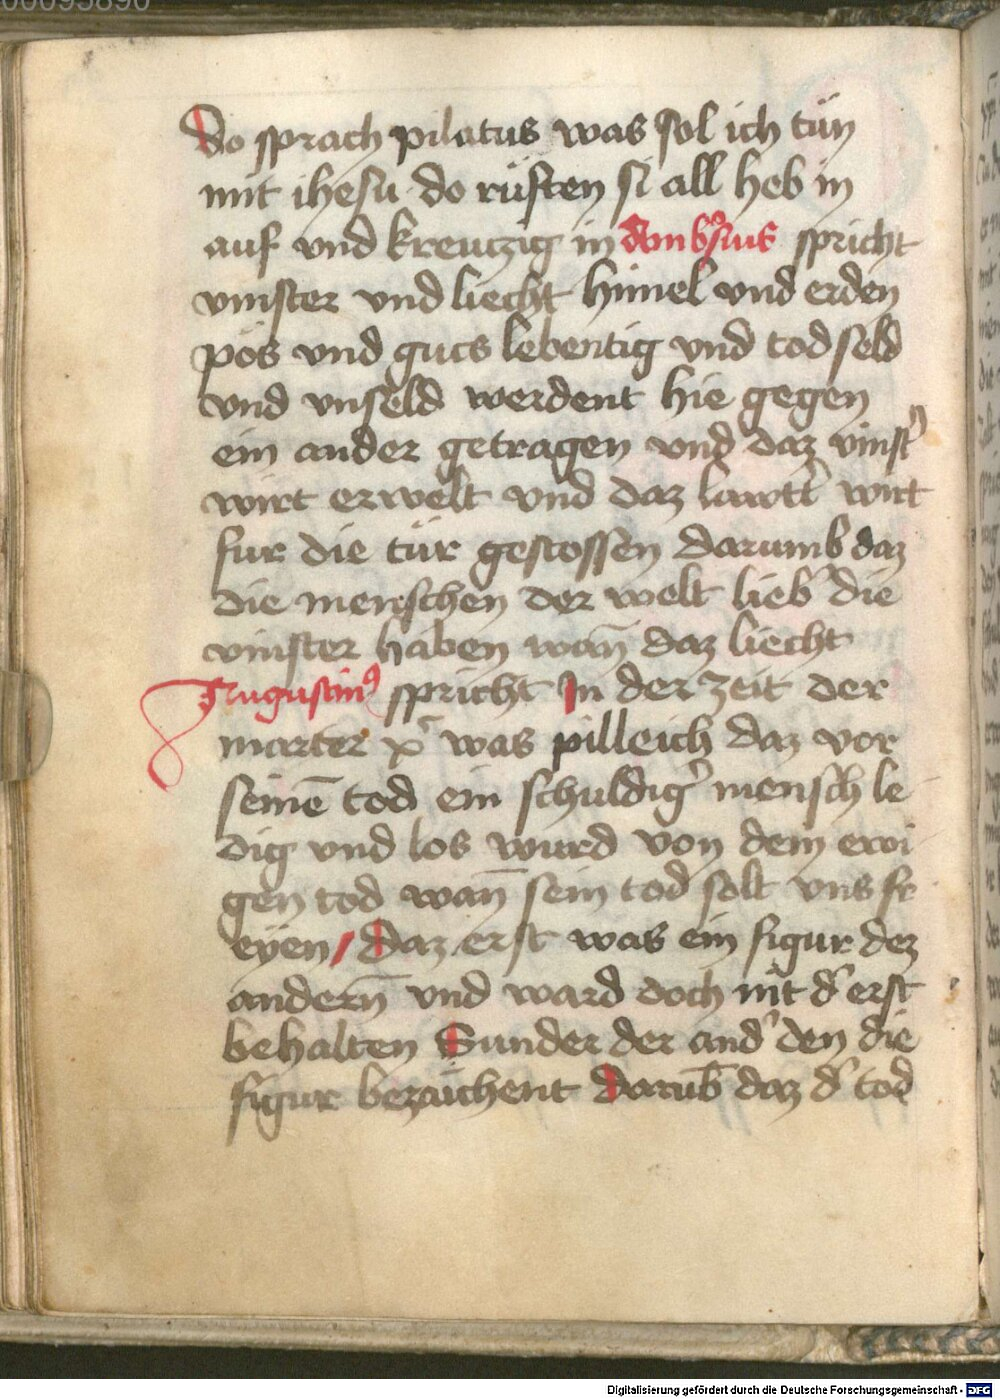 00095890
Do sprach pilatus was sol ich tün
mit ihesu do rüften si all heb in
auf vnd kreutzig in Ambrsius spricht
vinster vnd liecht himel vnd erden
pös vnd guts lebentig vnd tod seld
vnd vnseld werdent hie gegen
ein ander getragen vnd daz vinst̓
wirt erwelt vnd daz lawtt̓ wirt
fur die tür gestossen darumb daz
die menschen der welt lieb̓ die
vinster haben wan̄ daz liecht
Augustin⁹ spricht In der zeit der
marter xp̄i was pilleich daz vor
seinē tod ein schuldig̓ mensch le
dig vnd los wurd von dem ewi
gen tod wan̄ sein tod solt vns fr
eyen / Daz erst was ein figur dez
andern̄ vnd ward doch nit d̓ erst
behalten Sunder der and̓ den die
figur bezaichent darūb daz d̓ tod
Digitalisierung gefördert durch die Deutsche Forschungsgemeinschaft - DFG